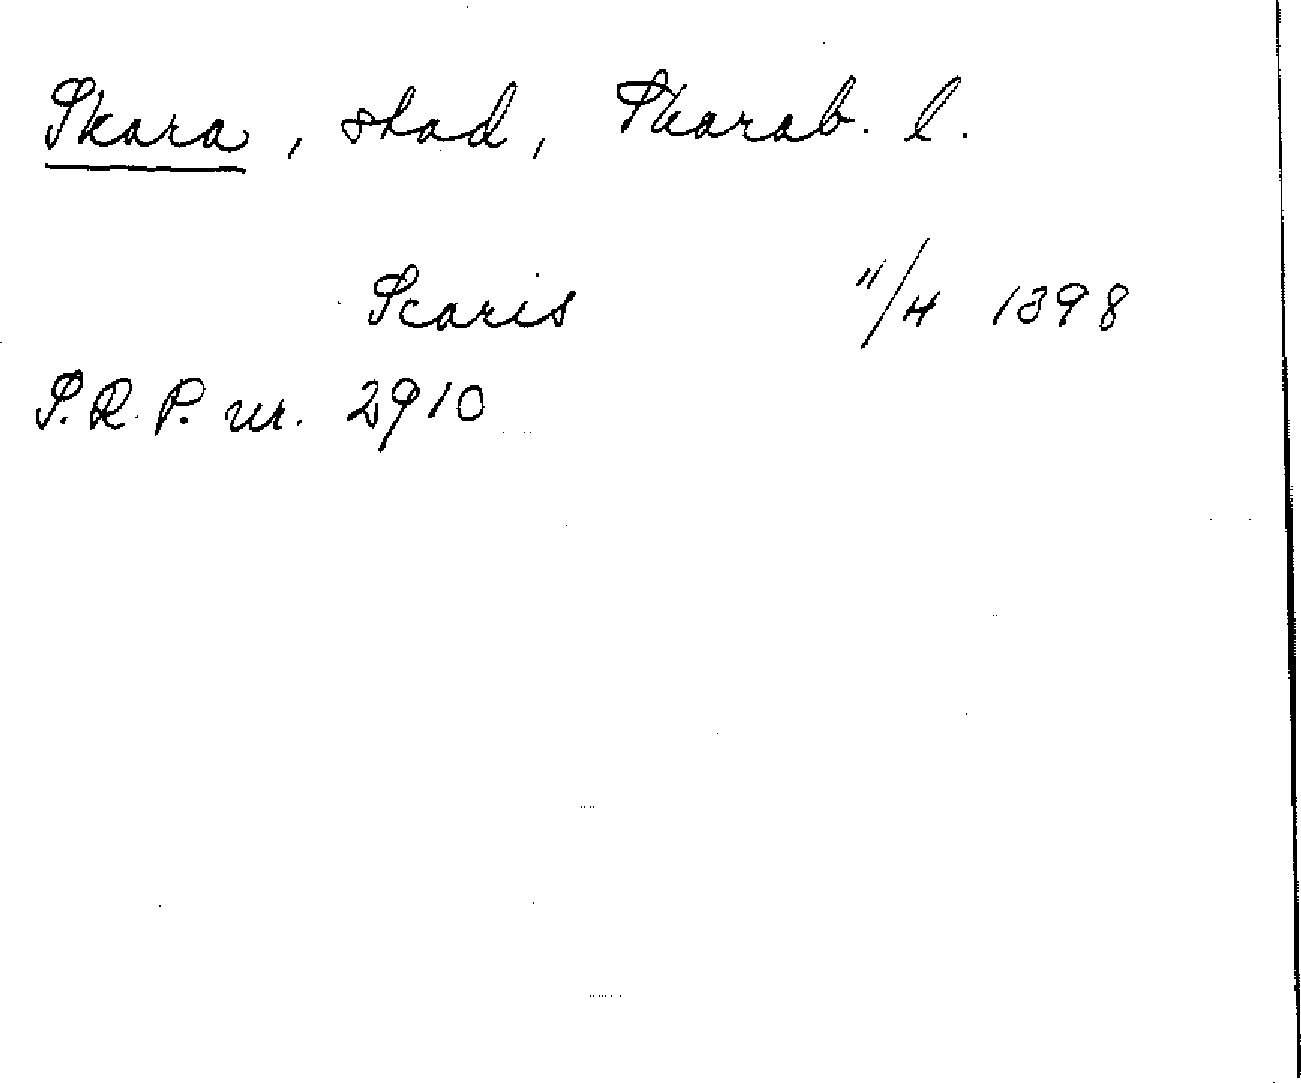 Skara, stad, Skarab. l.
Scaris 11/4 1398
S.R.P. nr. 2910